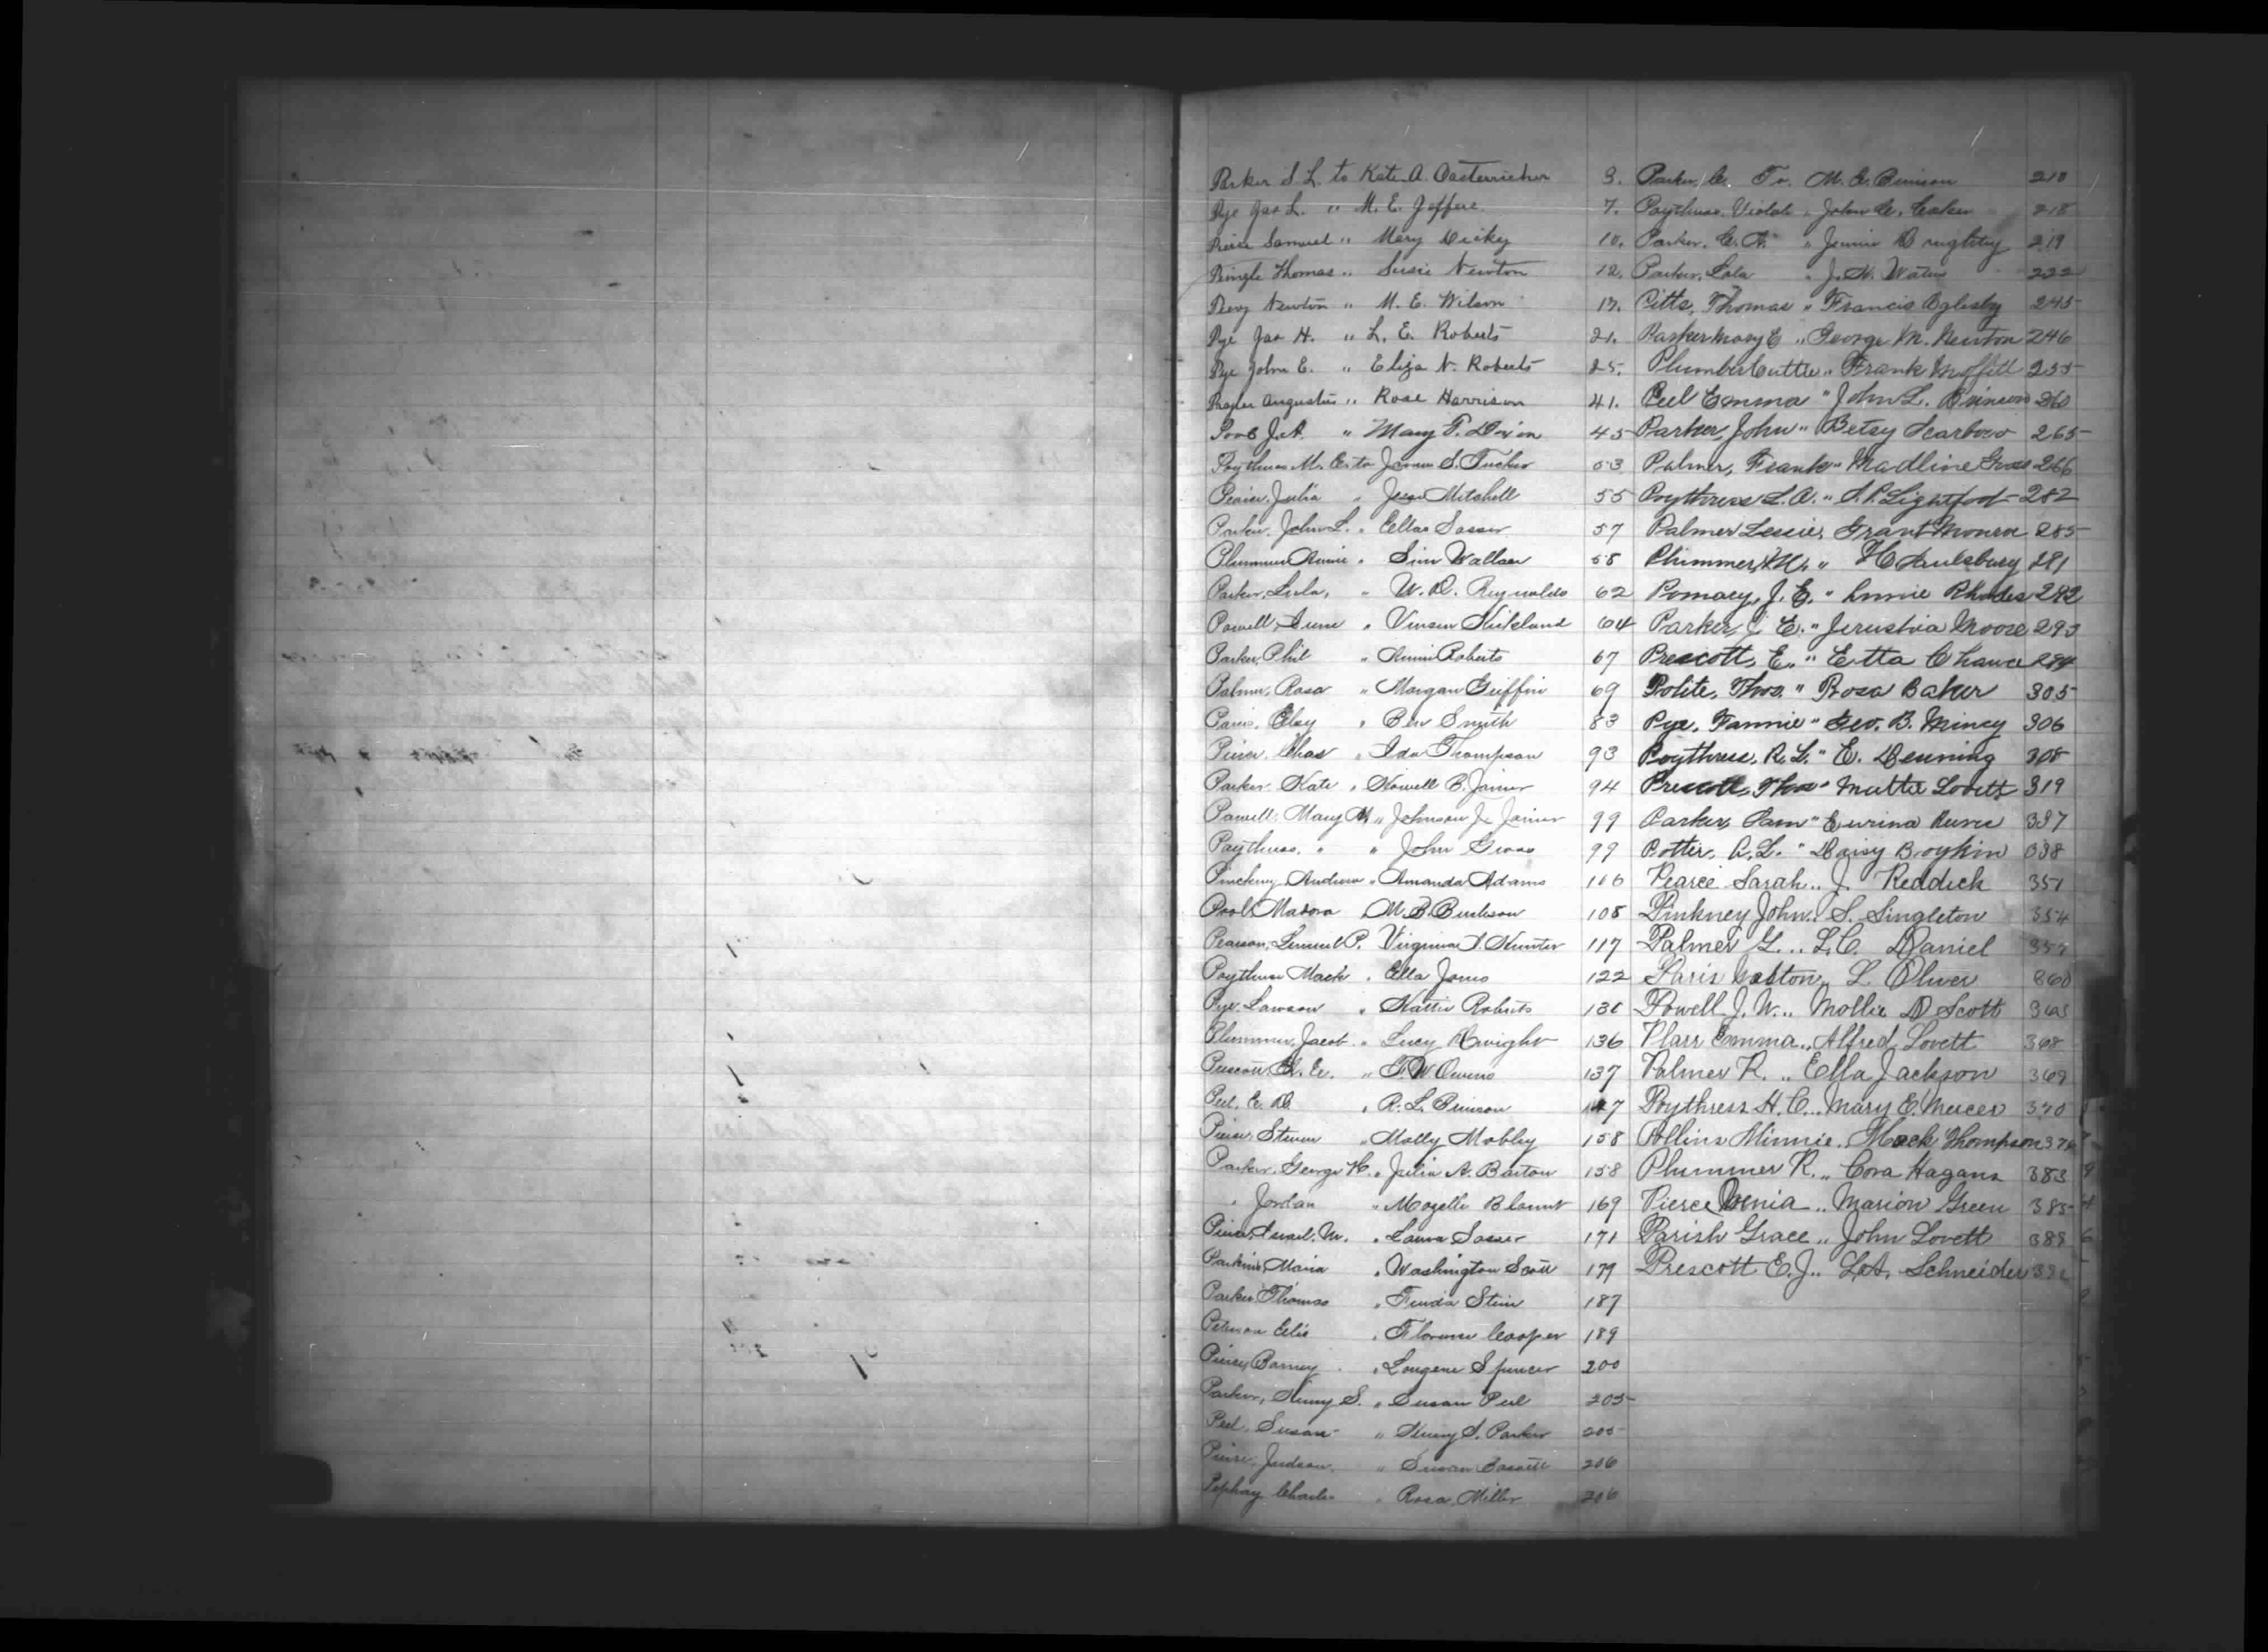 Parker S. L. to Kate A. Oasterricher 3.
Pye Jas L. " M. E. Jeffers 7.
Pierce Samuel " Mary Dicky 10.
Pringle Thomas " Susie Newton 12.
Newton " M. E. Wilson 17.
Pye Jas H. " L. E. Roberts 21.
Pye John E. " Eliza N. Roberts 25.
Augustus " Rose Harrison 41.
Pool J. A. " Mary P. Dixon 45
Poythress M. E. to James S. Tucker 53
Julia " Jesse Mitchell 55
Parker, John L. " Ellas Sasser 57
Plummer Annie " Sim Wallace 58
Parker, Lula, " W. D. Reynolds 62
Powell, June " Vinson Stikland 64
Parker, Phil " Annie Roberts 67
Palmer, Rosa " Morgan Griffin 69
Paris, Clay " Ben Smith 83
Pierce, Chas " Ida Thompson 93
Parker Kate " Howell B. Joiner 94
Powell, Mary M. " Johnson J. Joiner 99
Poythress, " " John Gross 99
Pinckney, Andrew " Amanda Adams 106
Pool, Madora M. B. Burkson 108
Pearson, Lemuel P. Virginia I. Hunter 117
Poythress Mack " Ella Jones 122
Pye, Lawson " Hattie Roberts 130
Plummer, Jacob " Lucy Dwight 136
Prescott " T. W. Owens 137
Peel, E. D. " R. L. Brinson 147
Pierce, Steven " Molly Mobley 158
Parker, George H. " Julia A. Barton 158
" Jordan " Mozelle Blount 169
Israel, M. " Laura Sasser 171
Perkins, Maria " Washington Scott 179
Parker Thomas " Stein 187
Elis " Florence Cooper 189
Barney " Lougene Spencer 200
Parker, Henry S. " Susan Peel 205
Peel, Susan " Henry S. Parker 205
Judson " Susan 206
Charles " Rosa Miller 206
Parker, C. To M. E. Brinson 210
Poythress, Violet " John C. 218
Parker, C. A. " Jennie Doughtry 219
Parker, Lola " J. H. Waters 232
Pitts, Thomas " Francis Oglesby 245
Parker Mary E " George M. Newton 246
Plumber Cuttie " Frank Moffitt 255
Peel Emma " John L. Brinson 260
Parker, John " Betsy Scarboro 265
Palmer, Frank " Madline Gross 266
Poythress L. A. " S. P. Lightfoot 282
Palmer Lessie, Grant Monroe 285
Plummer, " H Saulsbury 291
Pomaey, J. E. " Annie Rhodes 292
Parker, J. E. " Jerushia Moore 293
Prescott, E. " Etta Chance 294
Polite, Thos. " Rosa Baker 305
Pye, Fannie " Geo. B. Mincy 306
Poythress, R. L. " E. Denning 308
Prescott, Thos " Mattie Lovett 319
Parker, Sam " Eurina Reeves 337
Potter, A. L. " Daisy Boykin 338
Pearce Sarah .. J. Reddick 351
Pinkney John .. S. Singleton 354
Palmer G. .. L. C. Daniel 357
Paris Walton .. L. Oliver 360
Powell J. W. .. Mollie D Scott 363
Plarr Emma .. Alfred Lovett 368
Palmer R. .. Ella Jackson 369
Poythress H. C. .. Mary E. Mercer 370
Pollins Minnie .. Mack Thompson 376
Plummer R. .. Cora Hagans 383
Pierce Venia .. Marion Green 385
Parish Grace .. John Lovett 388
Prescott E. J. .. L. A. Schneider